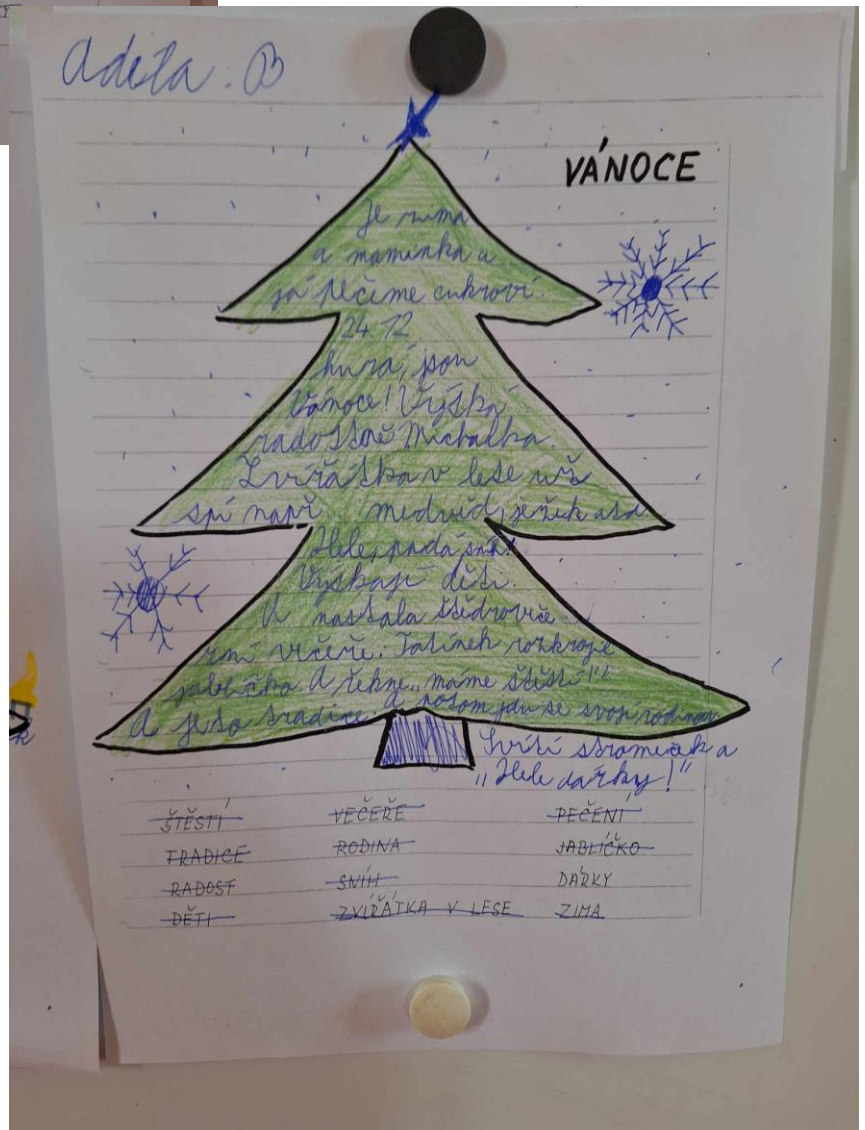 Adéla: B
VÁNOCE
Je zima
a maminka a
já pečeme cukroví.
24.12.
hurá, jsou
Vánoce! Výská
radostně Michalka.
Zvířátka v lese už
spí např. medvěd, ježek atd.
Hele, padá sníh!
Výskají děti.
A nastala štědrovče-
rní večeře. Tatínek rozkroje
jablíčko. A řekne „máme štěstí!"
A je to tradice. A potom jdu se svojí rodinou
Svítí stromeček a
„Hele dárky!"
ŠTĚSTÍ VEČEŘE PEČENÍ
TRADICE RODINA JABLÍČKO
RADOST SNÍH DÁRKY
DĚTI ZVÍŘÁTKA V LESE ZIMA